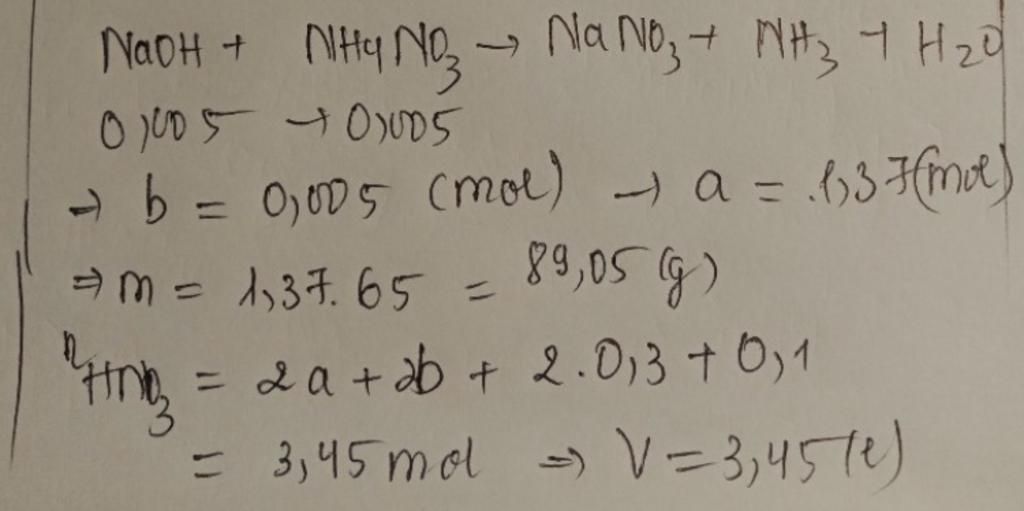 NaOH + NH4NO3 → NaNO3 + NH3 + H2O
0,005 → 0,005
→ b = 0,005 (mol) → a = 1,37 (mol)
⇒ m = 1,37.65 = 89,05 (g)
nHNO3 = 2a + 2b + 2.0,3 + 0,1
= 3,45 mol ⇒ V = 3,45 (l)